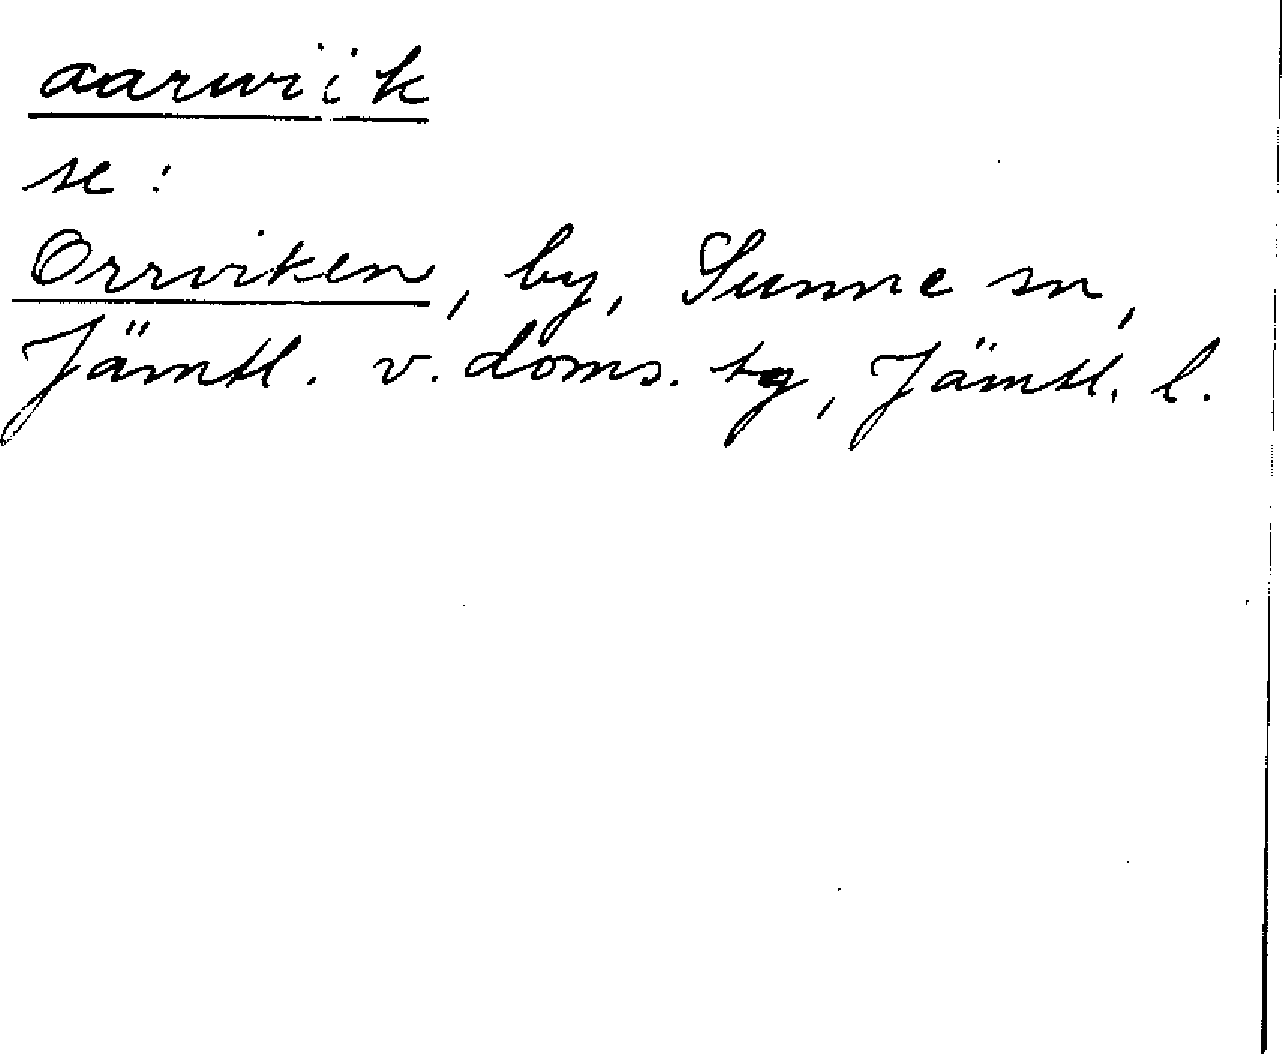 aarwiik
se:
Orrviken, by, Sunne sn,
Jämtl. v. doms. tg, Jämtl. l.